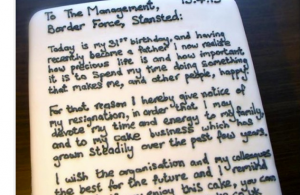 To The Management,
Border Force, Stansted:
Today is my 31st birthday, and having
recently become a father I now realise
how precious life is and how important
it is to spend my time doing something
that makes me, and other people, happy.
For that reason I hereby give notice of
my resignation, in order that I may
devote my time and energy to my family,
and to my cake business which has
grown steadily over the past few years.
I wish the organisation and my colleagues
the best for the future and I remind
enjoy this cake, you can